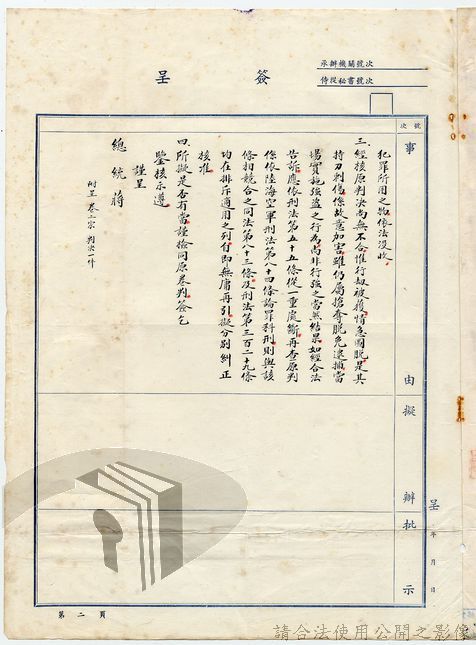 簽呈
承辦機關號次
侍從秘書號次
號次
事由擬辦批示
呈 年 月 日
犯罪所用之物依法沒收
三、經核原判決尚無不合惟行劫被獲情急圖脫是其
持刀刺傷係故意加害雖仍屬搶奪脫免逮捕當
場實施強盜之行為尚非行強之當然結果如經合法
告訴應依刑法第五十五條從一重處斷再查原判
係依陸海空軍刑法第八十四條論罪科刑則與該
條相競合之同法第八十三條及刑法第三百二十九條
均在排斥適用之列自即無庸再引擬分別糾正
核准
四、所擬是否有當謹檢同原卷判簽乞
鑒核示遵
謹呈
總統蔣
附呈卷一宗判決一件
第二頁
請合法使用公開之影像